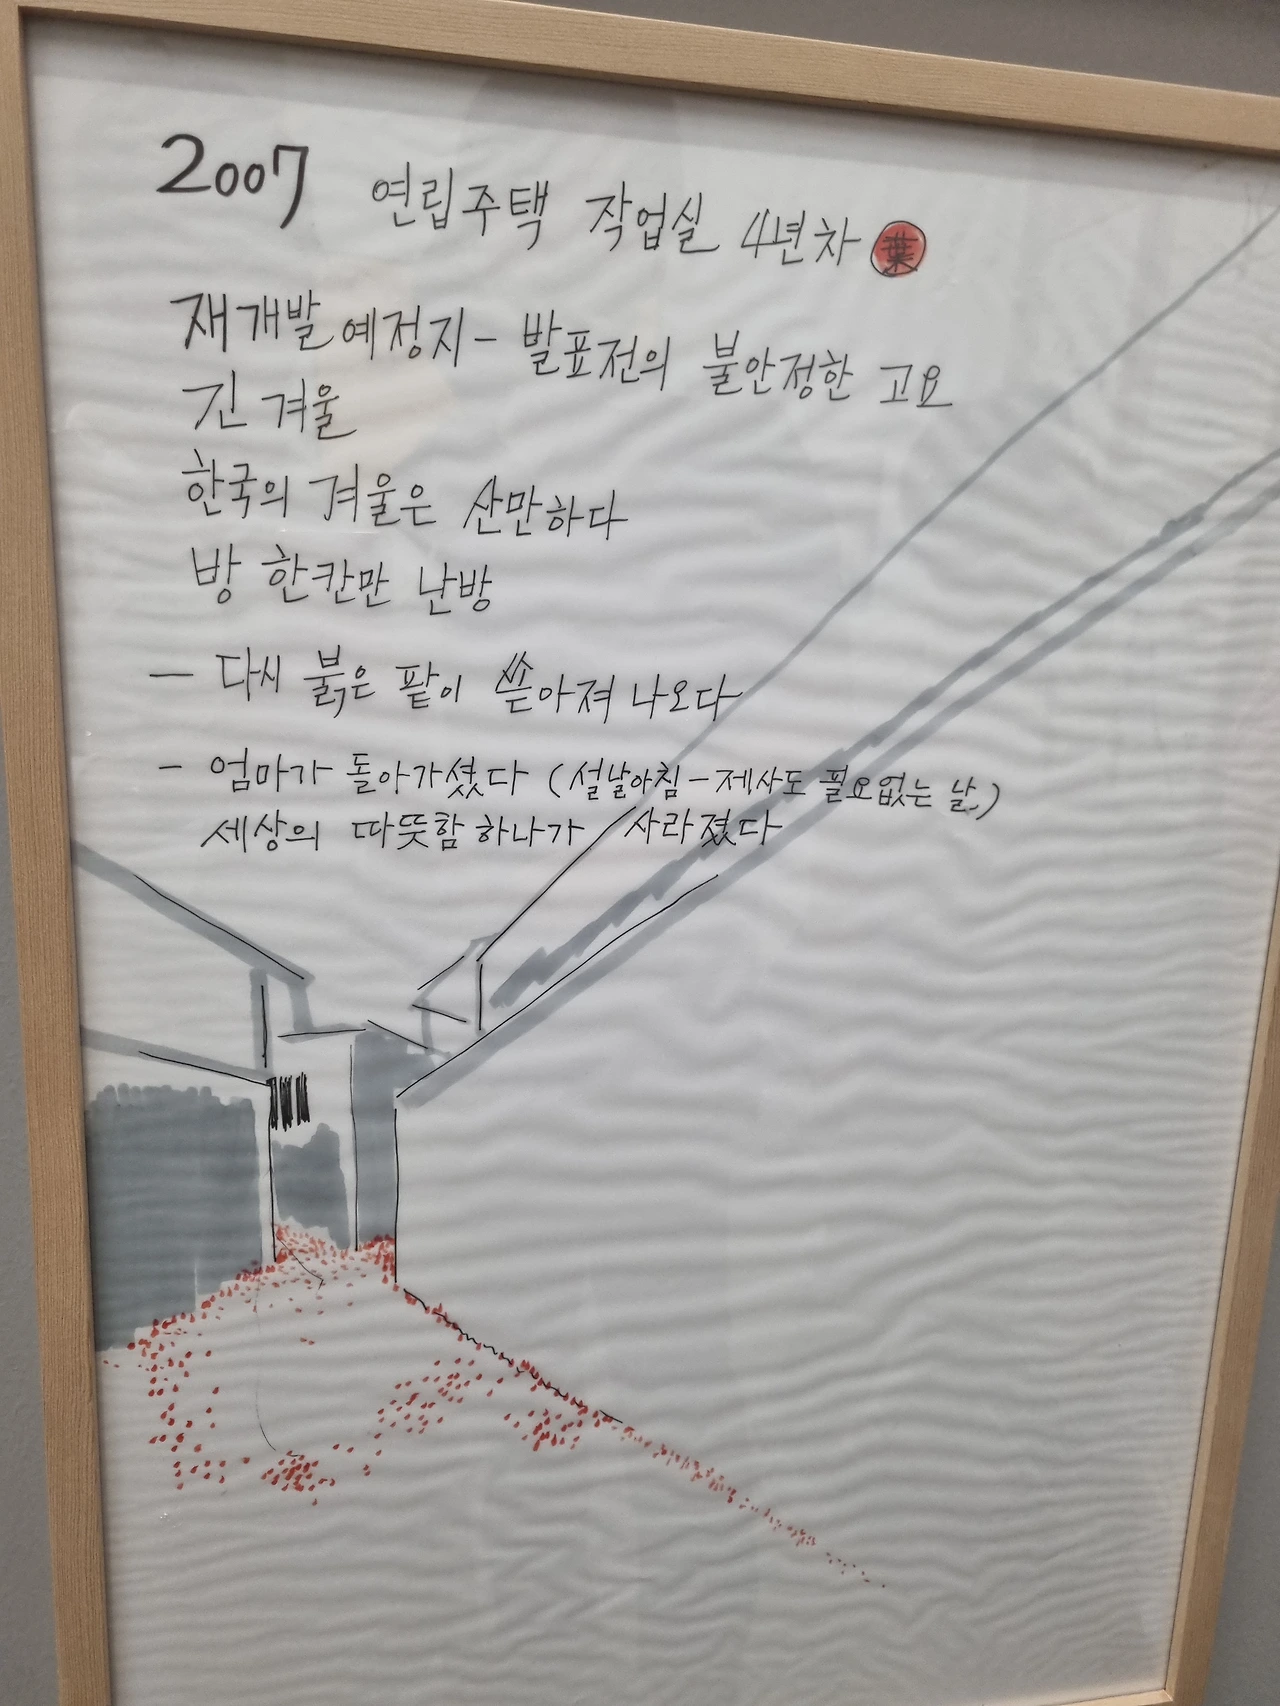 2007 연립주택 작업실 4년차 葉
재개발 예정지 - 발표전의 불안정한 고요
긴 겨울
한국의 겨울은 산만하다
방 한칸만 난방
— 다시 붉은 팥이 쏟아져 나오다
- 엄마가 돌아가셨다 (설날아침 - 제사도 필요없는 날)
세상의 따뜻함 하나가 사라졌다